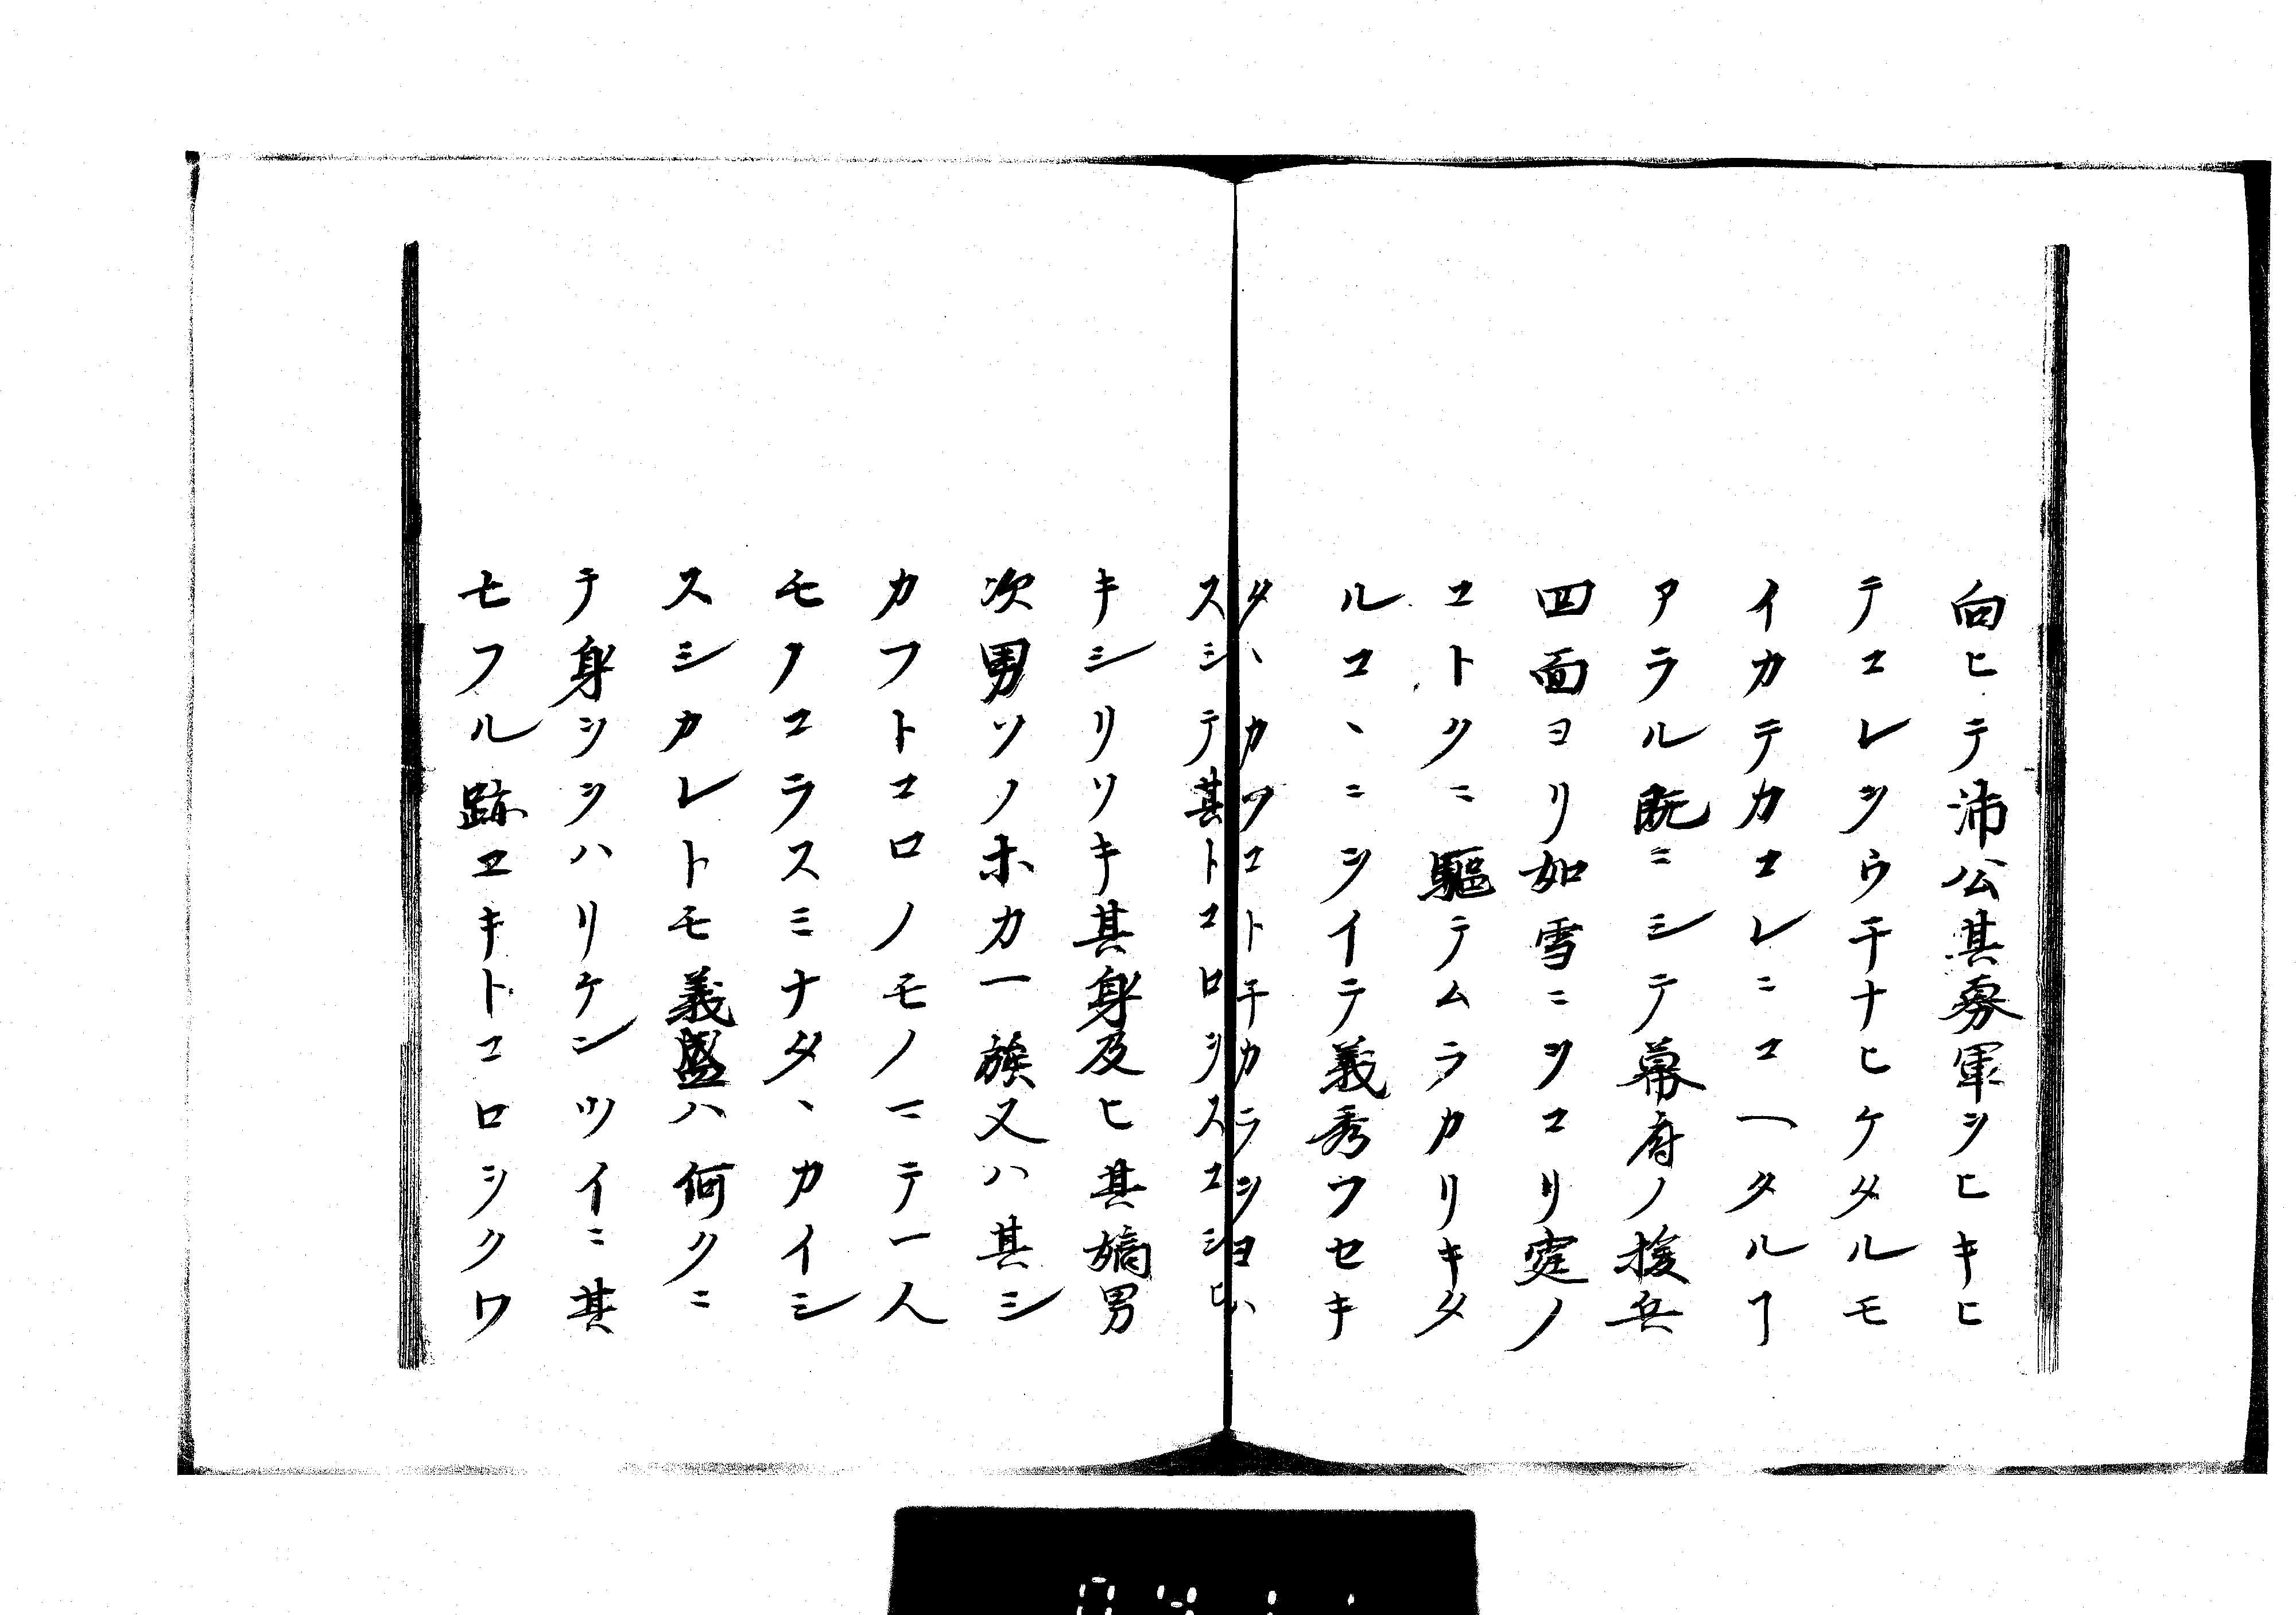 向ヒテ沛公其寡軍ヲヒキヒ
テコレヲウチナヒケタルモ
イカテカコレニコヘタルヿ
アラル既ニシテ幕府ノ援兵
四面ヨリ如雪ニヲコリ霆ノ
コトクニ驅テムラカリキタ
ルコヽニヲイテ義秀フセキ
タヽカフコトチカラヲヨハ
スシテ其トコロヲスコシヒ
キシリソキ其身及ヒ其嫡男
次男ソノホカ一族又ハ其シ
カフトコロノモノニテ一人
モノコラスミナタヽカイシ
スシカレトモ義盛ハ何クニ
テ身ヲヲハリケンツイニ其
セフル跡ユキトコロヲクワ